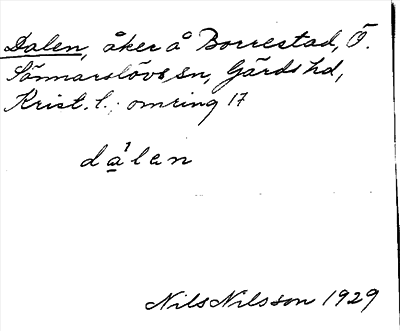 Dalen, åker å Borrestad, Ö.
Sönnarslövs sn, Gärds hd,
Krist. l.; omring 17
dálen
Nils Nilsson 1929